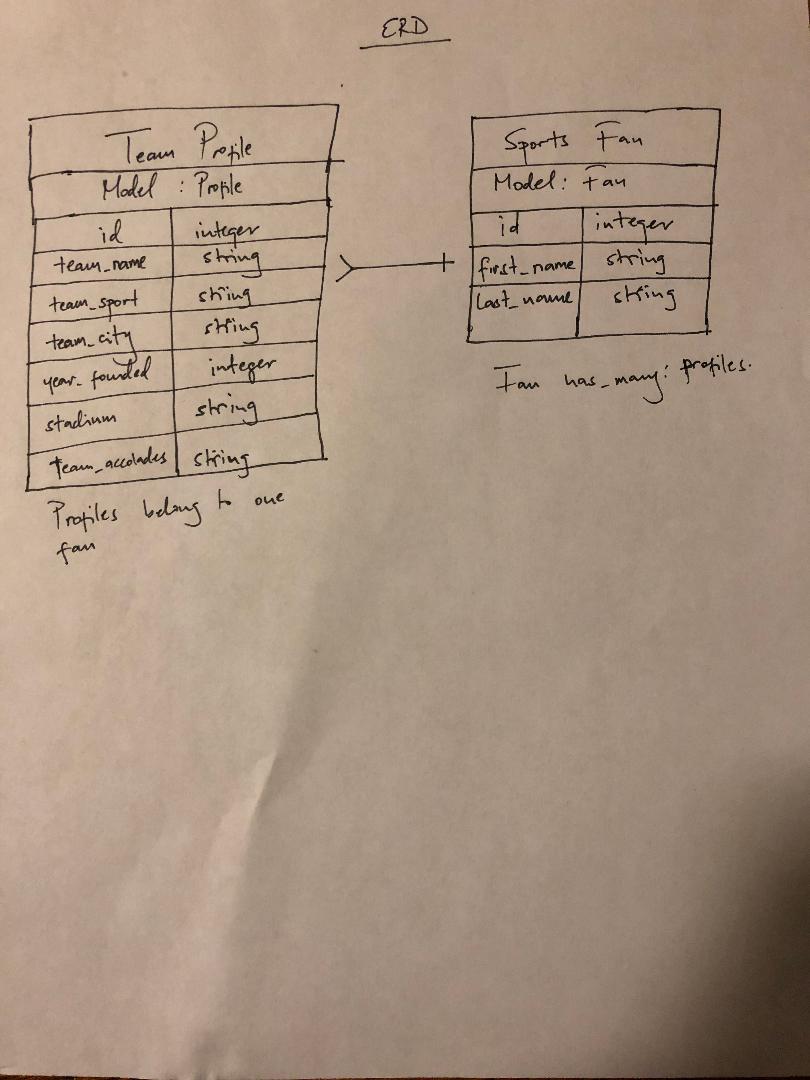 ERD
Team Profile
Model : Profile
id integer
team_name string
team_sport string
team_city string
year_founded integer
stadium string
team_accolades string
Profiles belong to one
fan
Sports Fan
Model: Fan
id integer
first_name string
last_name string
Fan has_many: profiles.